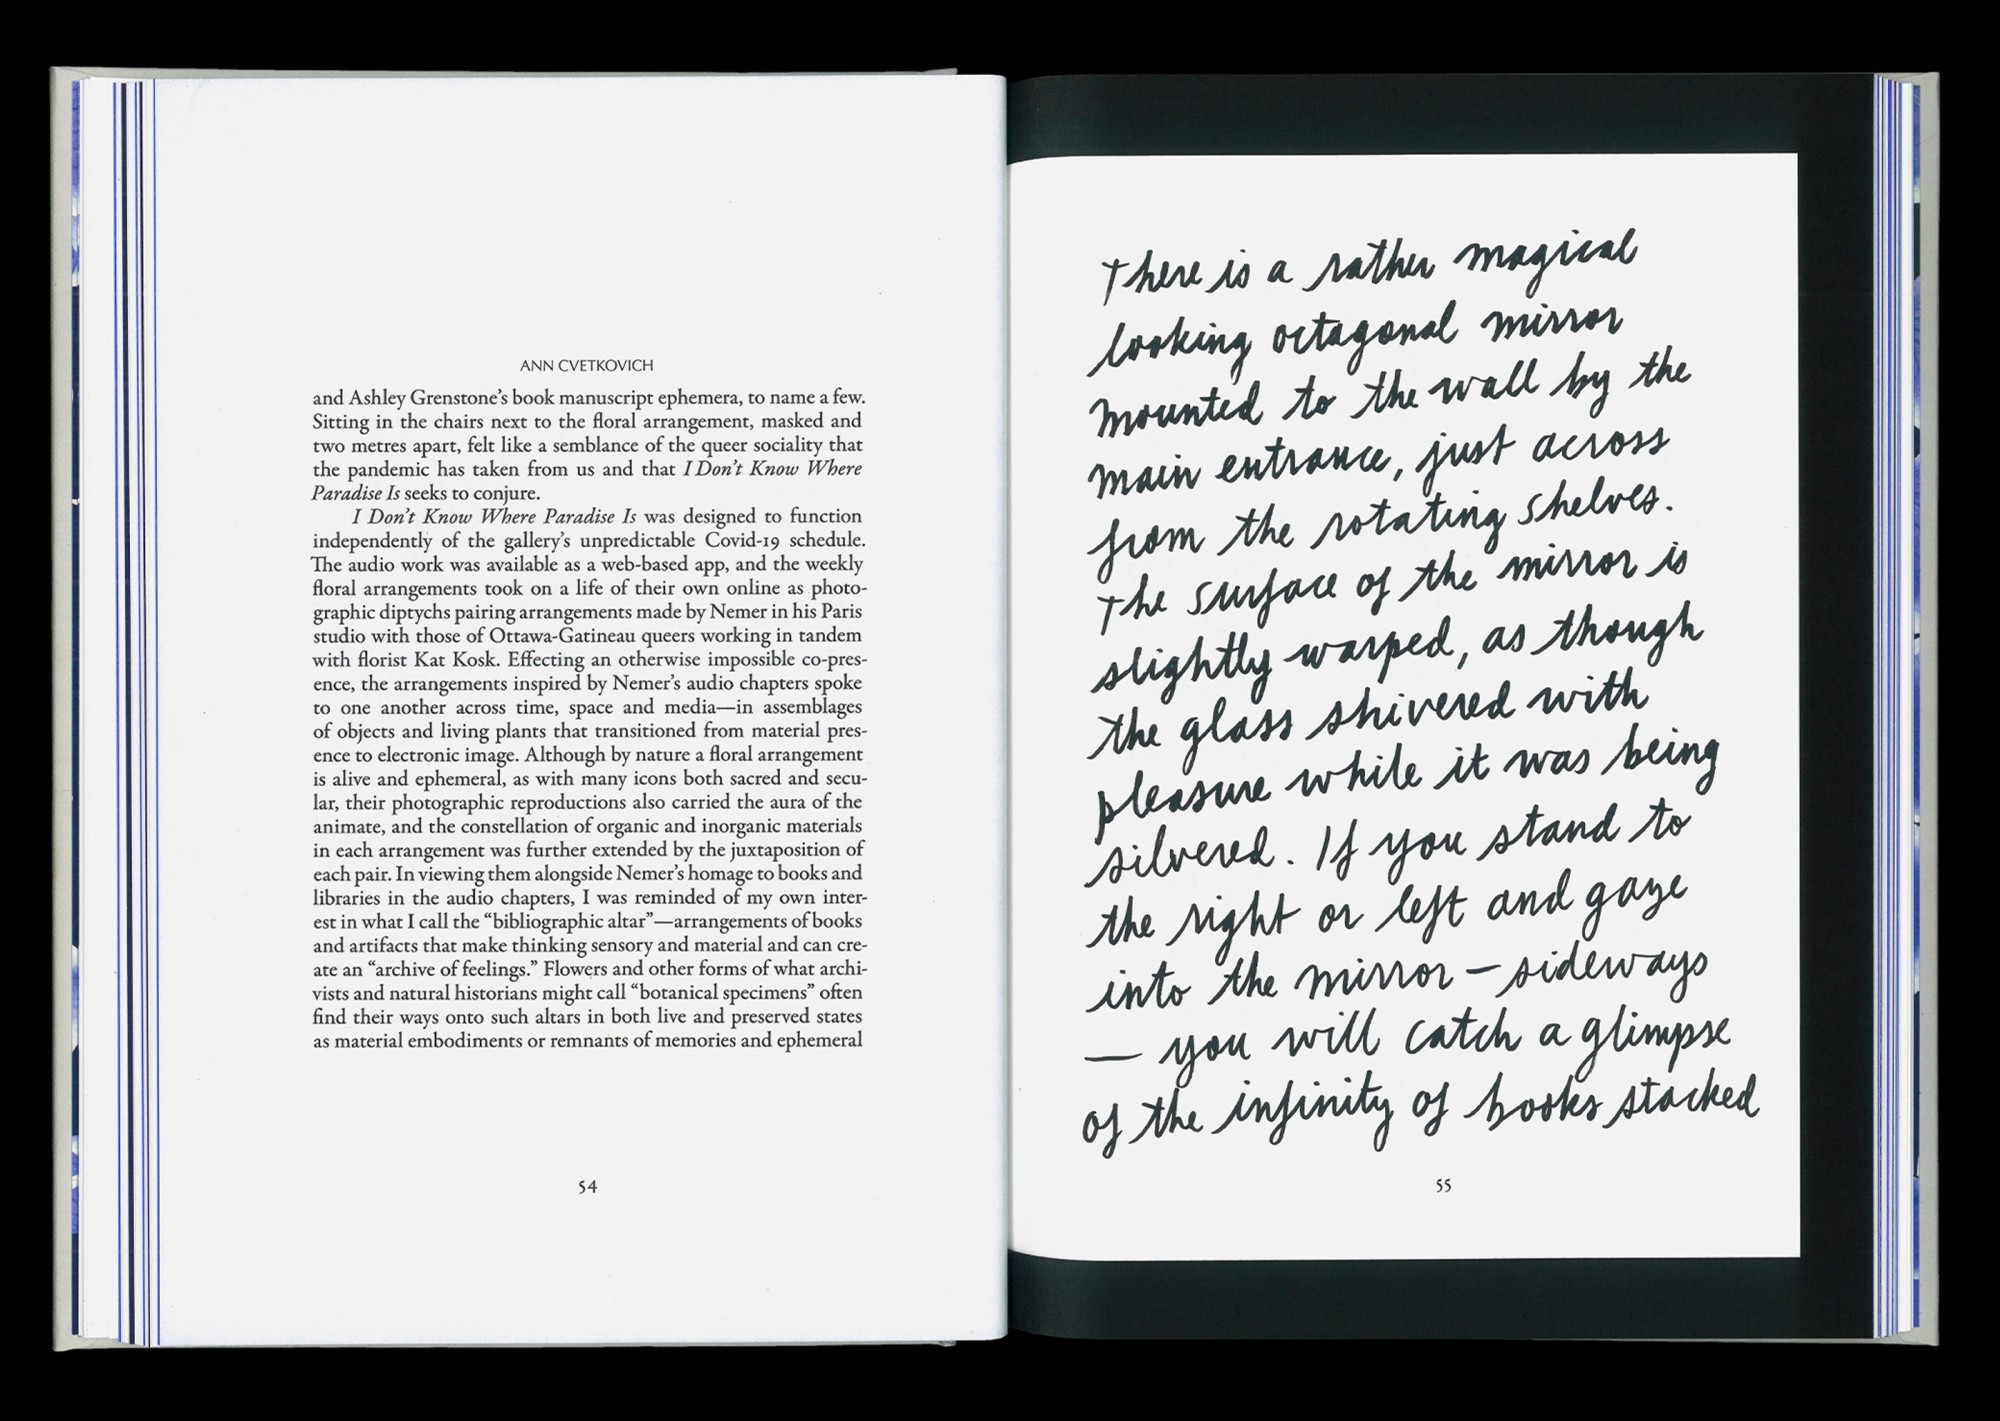 ANN CVETKOVICH
and Ashley Grenstone’s book manuscript ephemera, to name a few.
Sitting in the chairs next to the floral arrangement, masked and
two metres apart, felt like a semblance of the queer sociality that
the pandemic has taken from us and that I Don’t Know Where
Paradise Is seeks to conjure.
I Don’t Know Where Paradise Is was designed to function
independently of the gallery’s unpredictable Covid-19 schedule.
The audio work was available as a web-based app, and the weekly
floral arrangements took on a life of their own online as photo-
graphic diptychs pairing arrangements made by Nemer in his Paris
studio with those of Ottawa-Gatineau queers working in tandem
with florist Kat Kosk. Effecting an otherwise impossible co-pres-
ence, the arrangements inspired by Nemer’s audio chapters spoke
to one another across time, space and media—in assemblages
of objects and living plants that transitioned from material pres-
ence to electronic image. Although by nature a floral arrangement
is alive and ephemeral, as with many icons both sacred and secu-
lar, their photographic reproductions also carried the aura of the
animate, and the constellation of organic and inorganic materials
in each arrangement was further extended by the juxtaposition of
each pair. In viewing them alongside Nemer’s homage to books and
libraries in the audio chapters, I was reminded of my own inter-
est in what I call the “bibliographic altar”—arrangements of books
and artifacts that make thinking sensory and material and can cre-
ate an “archive of feelings.” Flowers and other forms of what archi-
vists and natural historians might call “botanical specimens” often
find their ways onto such altars in both live and preserved states
as material embodiments or remnants of memories and ephemeral
54
There is a rather magical
looking octagonal mirror
mounted to the wall by the
main entrance, just across
from the rotating shelves.
The surface of the mirror is
slightly warped, as though
the glass shivered with
pleasure while it was being
silvered. If you stand to
the right or left and gaze
into the mirror – sideways
— you will catch a glimpse
of the infinity of books stacked
55